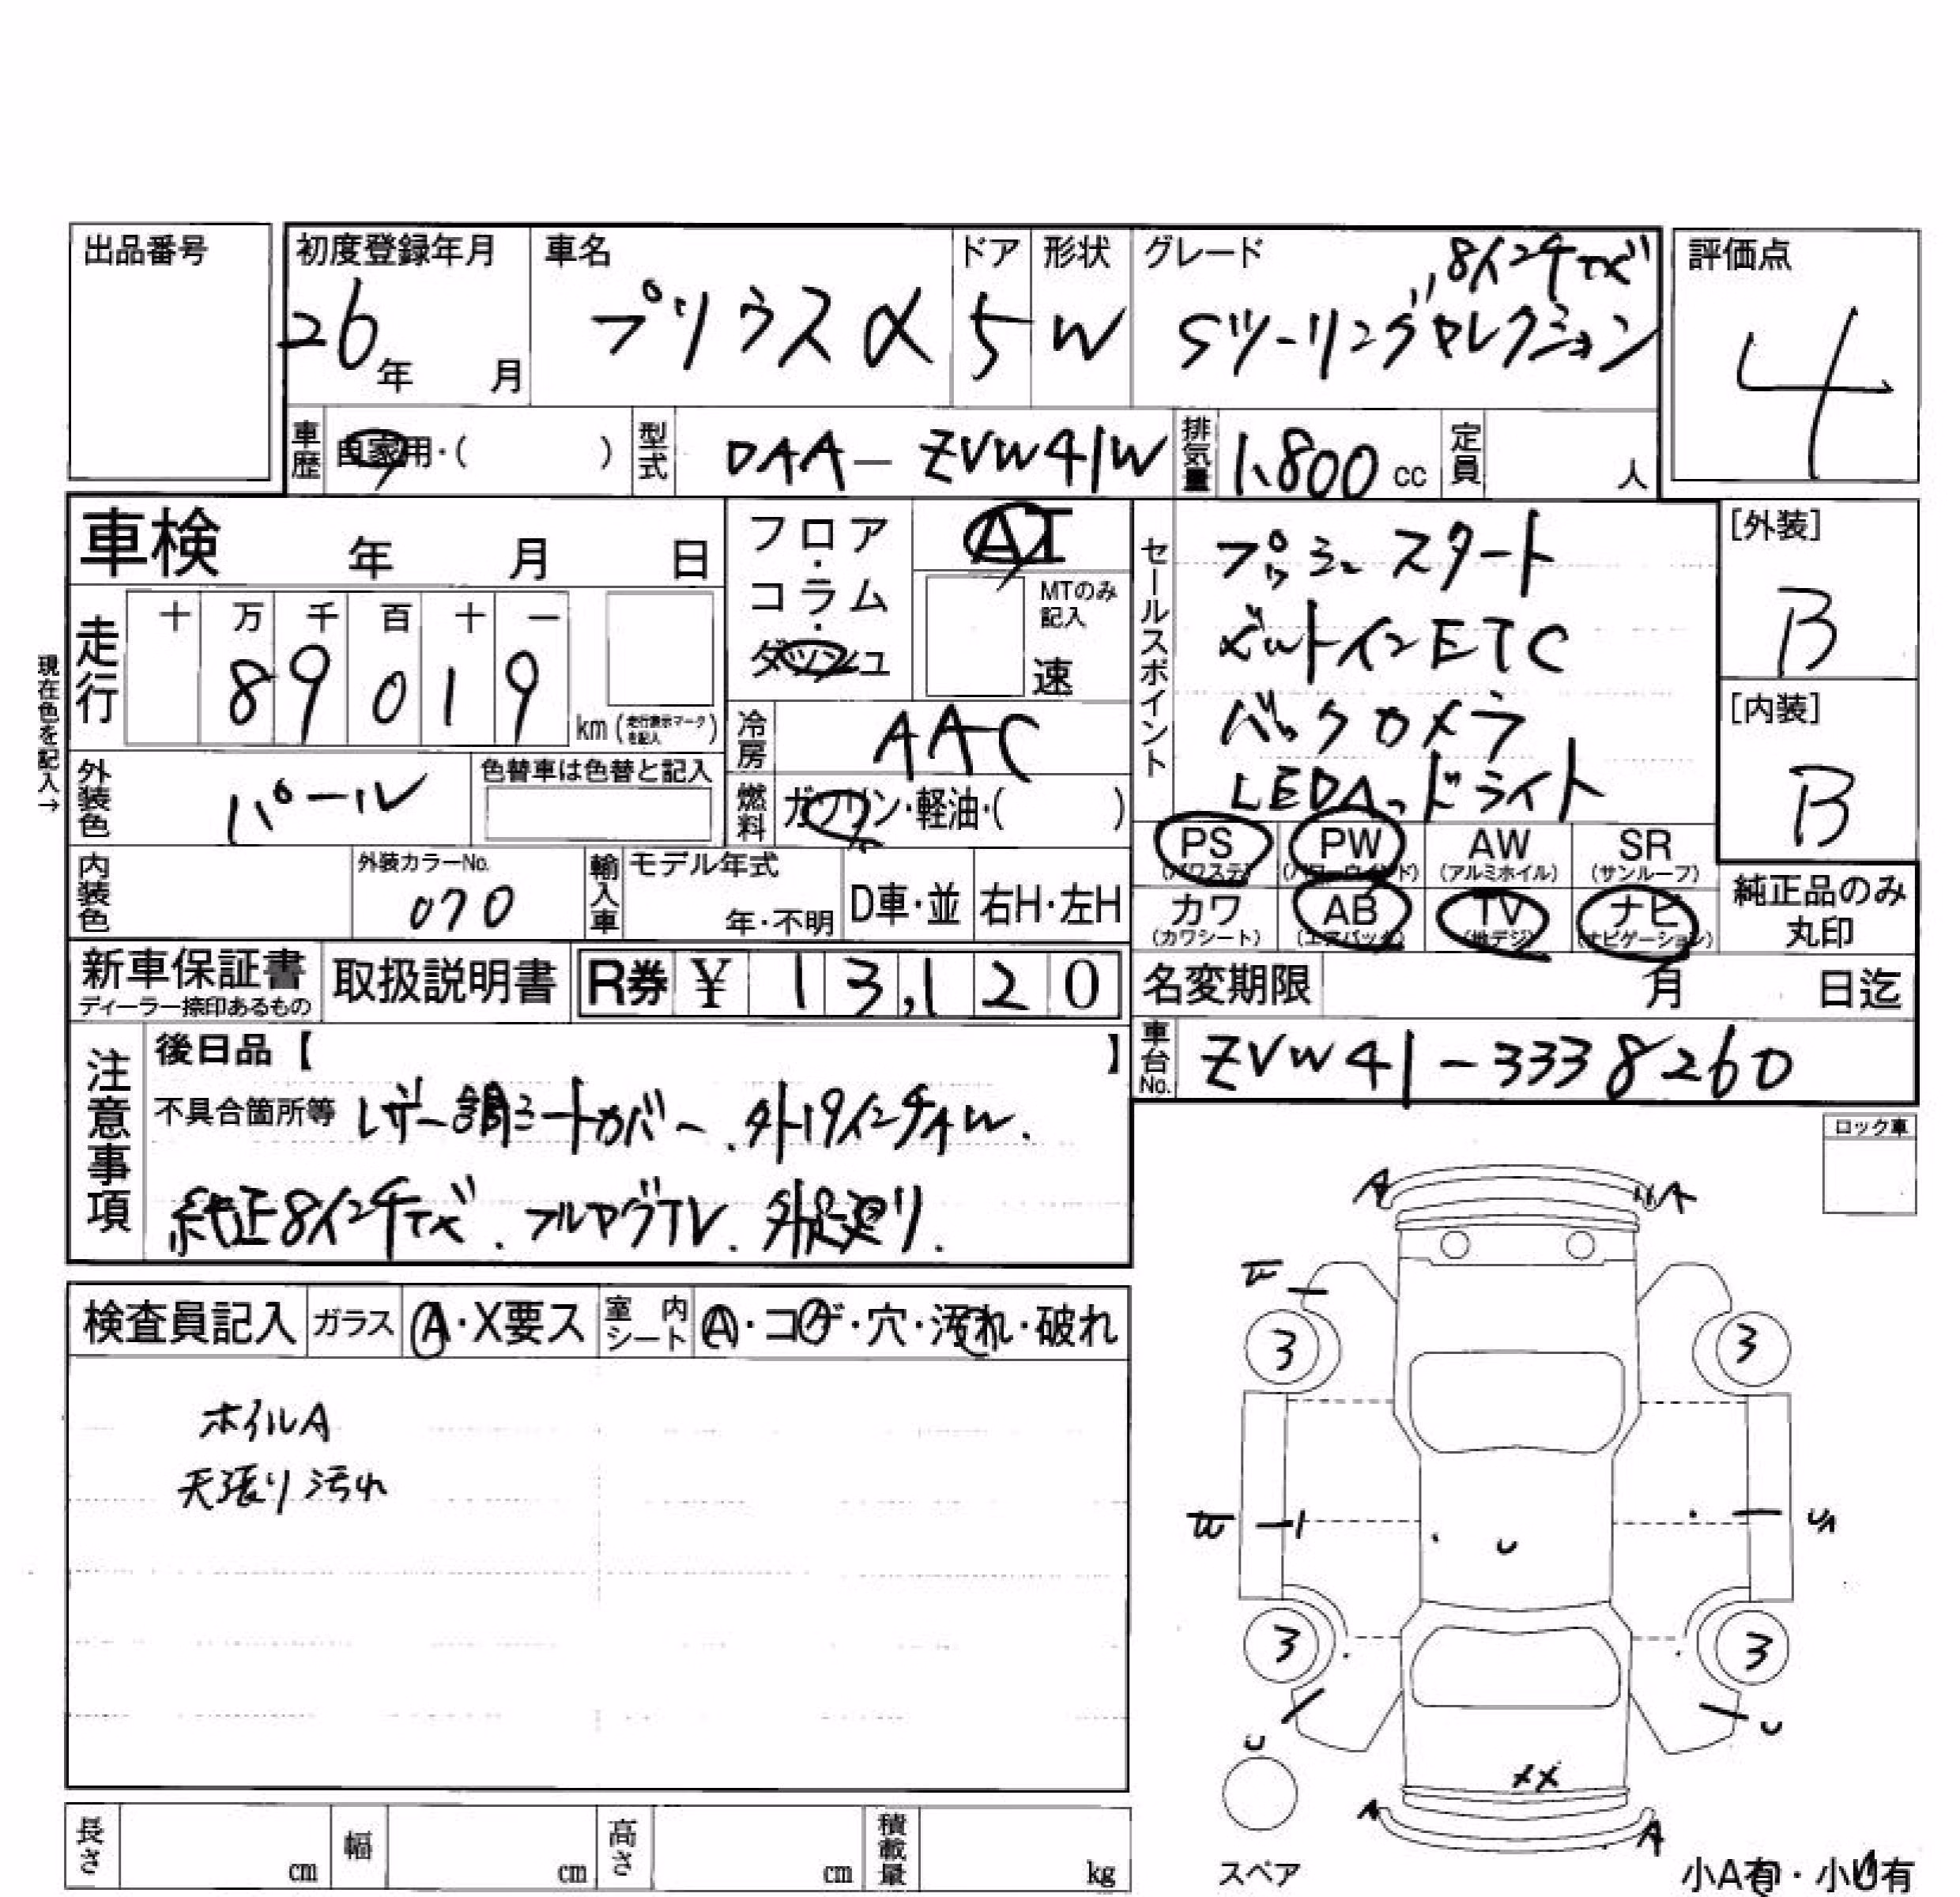 出品番号
初度登録年月
26年 月
車名
プリウスα
ドア
5
形状
W
グレード
8インチナビ
Sツーリングセレクション
評価点
4
車歴
自家用・( )
型式
DAA-ZVW41W
排気量
1,800 cc
定員
人
車検 年 月 日
フロア・コラム・ダッシュ
AT
MTのみ記入
速
セールスポイント
プッシュスタート
ビルトインETC
バックカメラ
LEDヘッドライト
[外装]
B
[内装]
B
現在色を記入→
走行
十 万 千 百 十 一
8 9 0 1 9
km (走行表示マークを記入)
冷房
AAC
外装色
パール
色替車は色替と記入
燃料
ガソリン・軽油・( )
PS (パワステ)
PW (パワーウィンド)
AW (アルミホイル)
SR (サンルーフ)
カワ (カワシート)
AB (エアバック)
TV (地デジ)
ナビ (ナビゲーション)
純正品のみ丸印
内装色
外装カラーNo.
070
輸入車
モデル年式
年・不明
D車・並
右H・左H
新車保証書
ディーラー捺印あるもの
取扱説明書
R券 ¥ 13,120
名変期限 月 日迄
車台No.
ZVW41-3338260
注意事項
後日品【 】
不具合箇所等 レザー調シートカバー.外19インチAW.
純正8インチナビ.フルセグTV.
ロック車
検査員記入
ガラス
A・X要ス
室内シート
A・コゲ・穴・汚れ・破れ
ホイルA
天張り汚れ
A
A
3
3
U
3
3
U
U
XX
A
A
スペア
小A有・小U有
長さ cm
幅 cm
高さ cm
積載量 kg